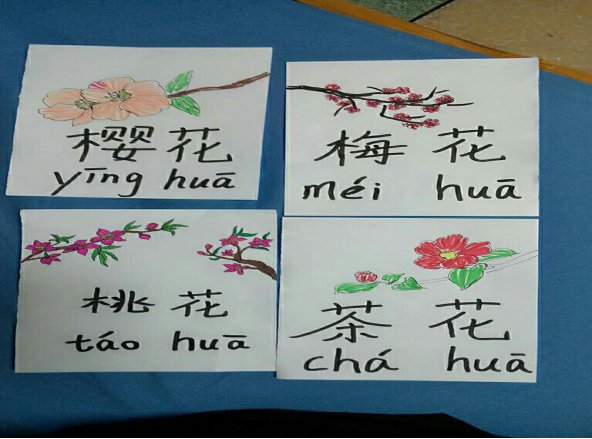 樱花
yīng huā
梅花
méi huā
桃花
táo huā
茶花
chá huā